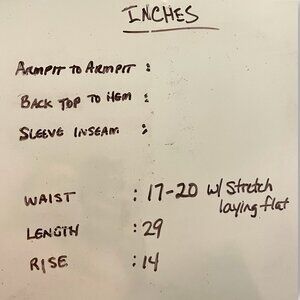 INCHES
ARMPIT TO ARMPIT :
BACK TOP TO HEM :
SLEEVE INSEAM :
WAIST : 17-20 w/ stretch
laying flat
LENGTH : 29
RISE : 14